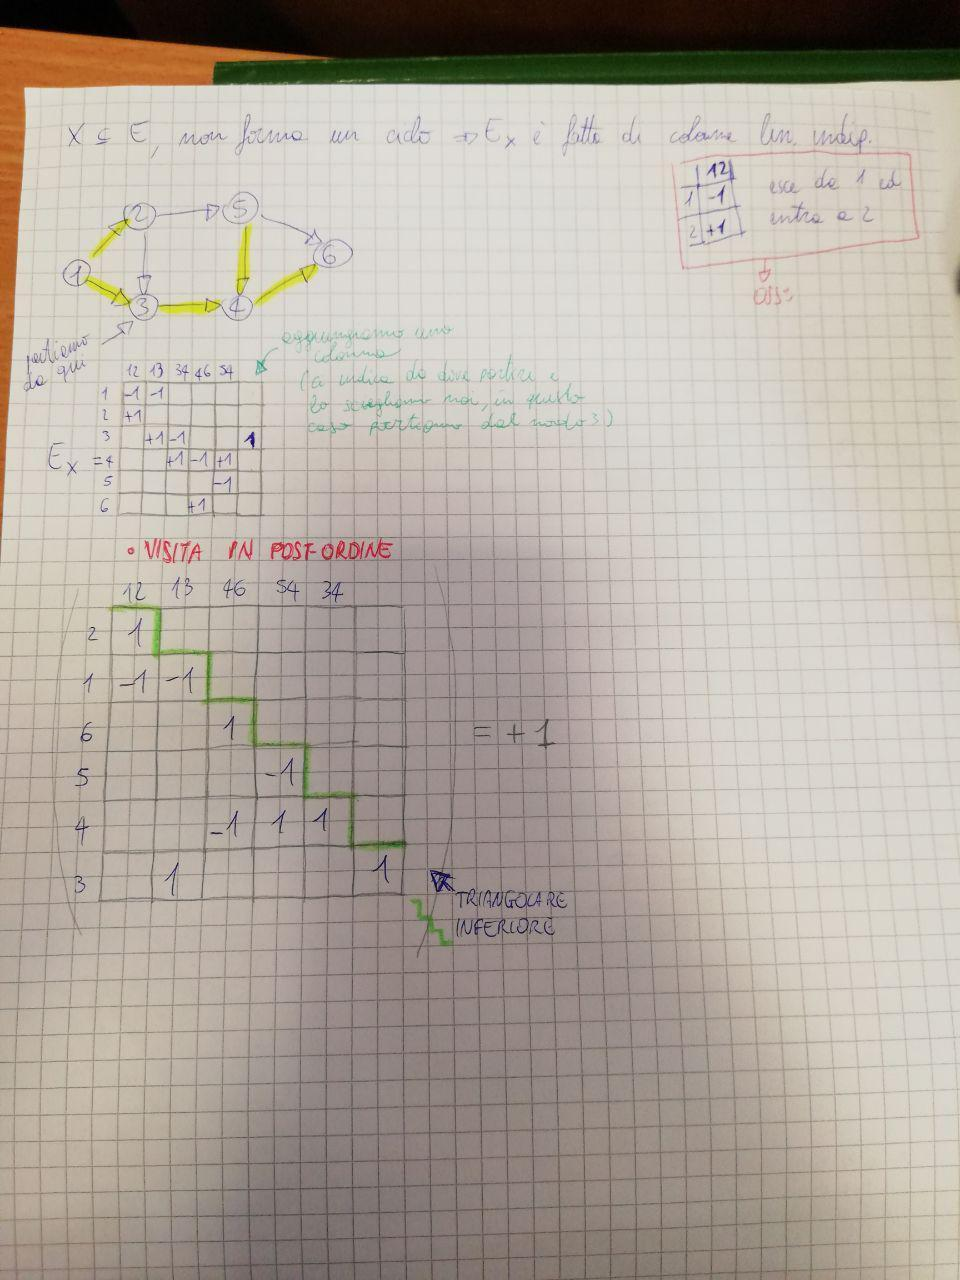 X ⊆ E, non forma un ciclo ⇒ E_x è fatta di colonne lin. indip.
12
1 -1
2 +1
esce da 1 ed
entra a 2
OSS:
2 5
1 6
3 4
partiamo
da qui
aggiungiamo una
colonna
(ci indica da dove partire e
lo scegliamo noi, in questo
caso partiamo dal nodo 3)
12 13 34 46 54
1 -1 -1
2 +1
3 +1 -1 1
E_x = 4 +1 -1 +1
5 -1
6 +1
• VISITA IN POST-ORDINE
12 13 46 54 34
2 1
1 -1 -1
6 1
= +1
5 -1
4 -1 1 1
3 1 1
TRIANGOLARE
INFERIORE